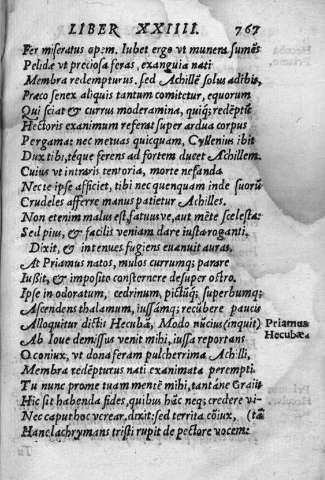 LIBER XXIIII. 767
Fer miseratus opem. Iubet ergo vt munera sumēs
Pelidæ vt preciosa feras, exanguia nati
Membra redempturus. sed Achillē solus adibis,
Præco senex aliquis tantum comitetur, equorum
Qui sciat & currus moderamina, quiq; redēptū
Hectoris exanimum referat super ardua corpus
Pergama: nec metuas quicquam, Cyllenius ibit
Dux tibi, téque ferens ad fortem ducet Achillem.
Cuius vt intraris tentoria, morte nefanda
Nec te ipse afficiet, tibi nec quenquam inde suorū
Crudeles afferre manus patietur Achilles.
Non etenim malus est, fatuusve, aut mēte scelesta:
Sed pius, & facilis veniam dare iusta roganti.
Dixit, & in tenues fugiens euanuit auras.
At Priamus natos, mulos currumq; parare
Iußit, & imposito consternere desuper ostro.
Ipse in odoratum, cedrinum, pictūq; superbumq;
Ascendens thalamum, iussāmq; recūbere paucis
Alloquitur dictis Hecubā, Modo nūcius (inquit)
Priamus
Hecubæa
Ab Ioue demissus venit mihi, iussa reportans
O coniux, vt dona feram pulcherrima Achilli,
Membra redēpturus nati exanimata perempti.
Tu nunc prome tuam mentē mihi, tantāne Graiis
Hic sit habenda fides, quibus hāc neq; credere vi-
Nec caput hoc vcrear, dixit: sed territa cōiux, (tā
Hanc lachrymans tristi rupit de pectore vocem: